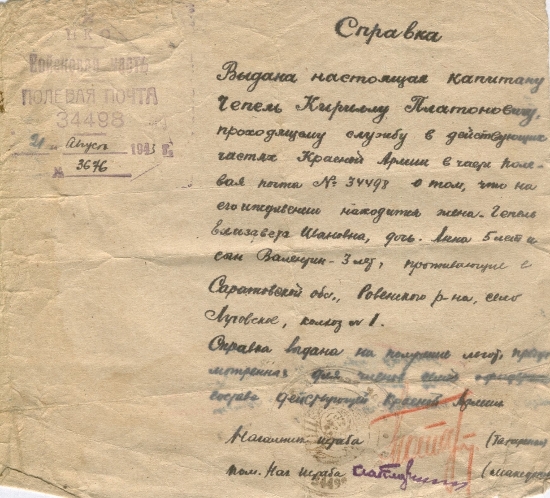 Н К О
Войсковая часть
ПОЛЕВАЯ ПОЧТА
34498
21 " Август 1943 г.
№ 3676
Справка
Выдана настоящая капитану
Чепель Кириллу Платоновичу,
проходящему службу в действующих
частях Красной Армии в части поле-
вая почта № 34498 о том, что на
его иждевении находится жена-Чепель
Елизавета Ивановна, дочь. Анна 5 лет и
сын Валентин-3 лет, проживающие в
Саратовской обл., Ровенского р-на, село
Луговское, колхоз № 1.
Справка выдана на получение льгот, преду-
смотренных для членов семей
состава действующей Красной Армии
Начальник штаба
пом. Нач штаба